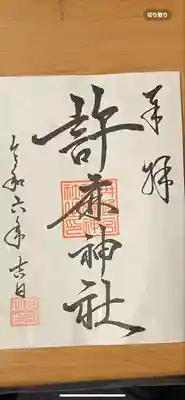 切り取り
奉拝
許麻神社
令和六年吉日